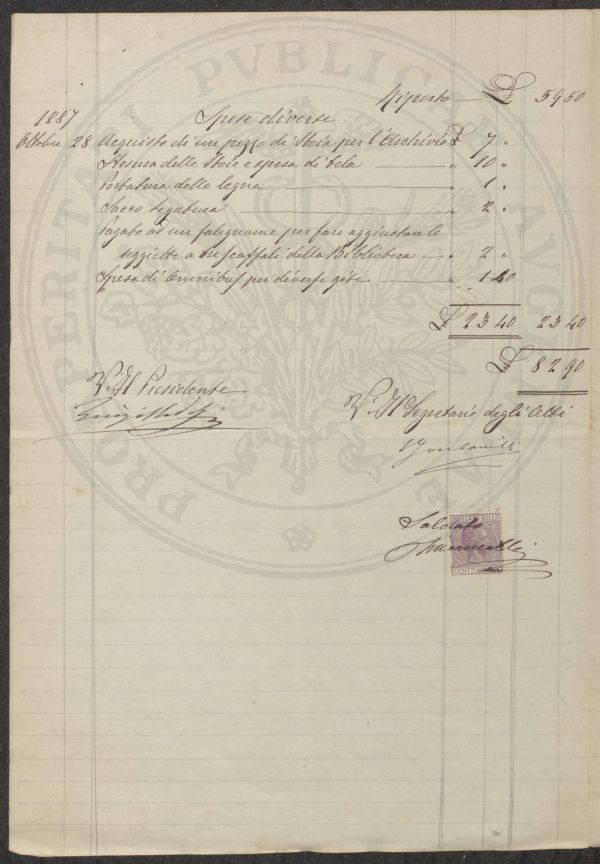 Riporto — £ 59 50
1887
Spese diverse
Ottobre 28 Acquisto di un pezzo di stoia per l'Archivio £ 7 "
Stesura delle stoie e spesa di tela — " 10 "
Portatura della legna — " 1 "
Sacco segatura — " 2 "
Pagato ad un falegname per fare aggiustare le
seggiette a tre scaffali della Biblioteca — " 2 "
Spesa di Omnibus per diverse gite — " 1 40
£ 23 40 23 40
£ 82 90
V.° Il Presidente
V.° Il Segretario degli Atti
Saldato
MARCA DA BOLLO
CENT.
PVBLICAE